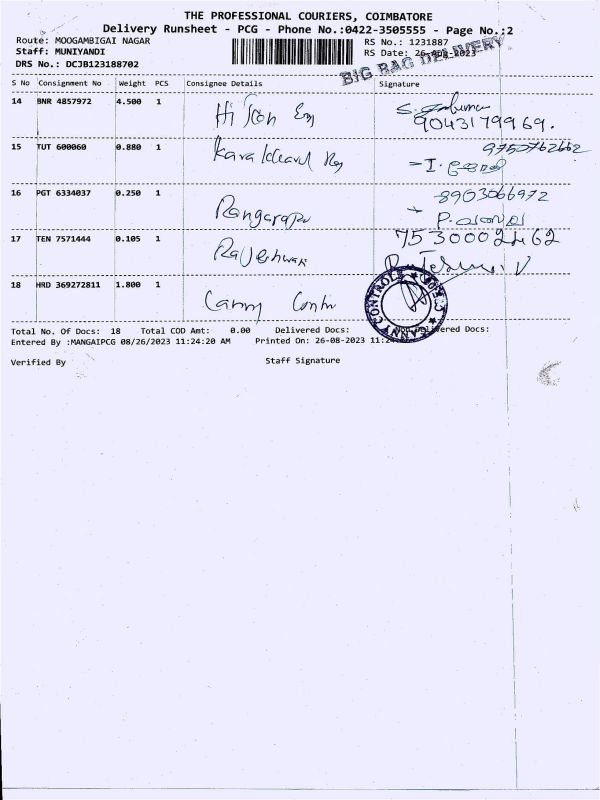 THE PROFESSIONAL COURIERS, COIMBATORE
Delivery Runsheet - PCG - Phone No.:0422-3505555 - Page No.:2
Route: MOOGAMBIGAI NAGAR RS No.: 1231887
Staff: MUNIYANDI RS Date: 26-Aug-2023
DRS No.: DCJB123188702 BIG BAG DELIVERY
S No Consignment No Weight PCS Consignee Details Signature
14 BNR 4857972 4.500 1 9043179969.
15 TUT 600060 0.880 1 9750762662
16 PGT 6334037 0.250 1 8903066972
Rangaraju
17 TEN 7571444 0.105 1
18 HRD 369272811 1.800 1
Total No. Of Docs: 18 Total COD Amt: 0.00 Delivered Docs: Non Delivered Docs:
Entered By :MANGAIPCG 08/26/2023 11:24:20 AM Printed On: 26-08-2023
Verified By Staff Signature